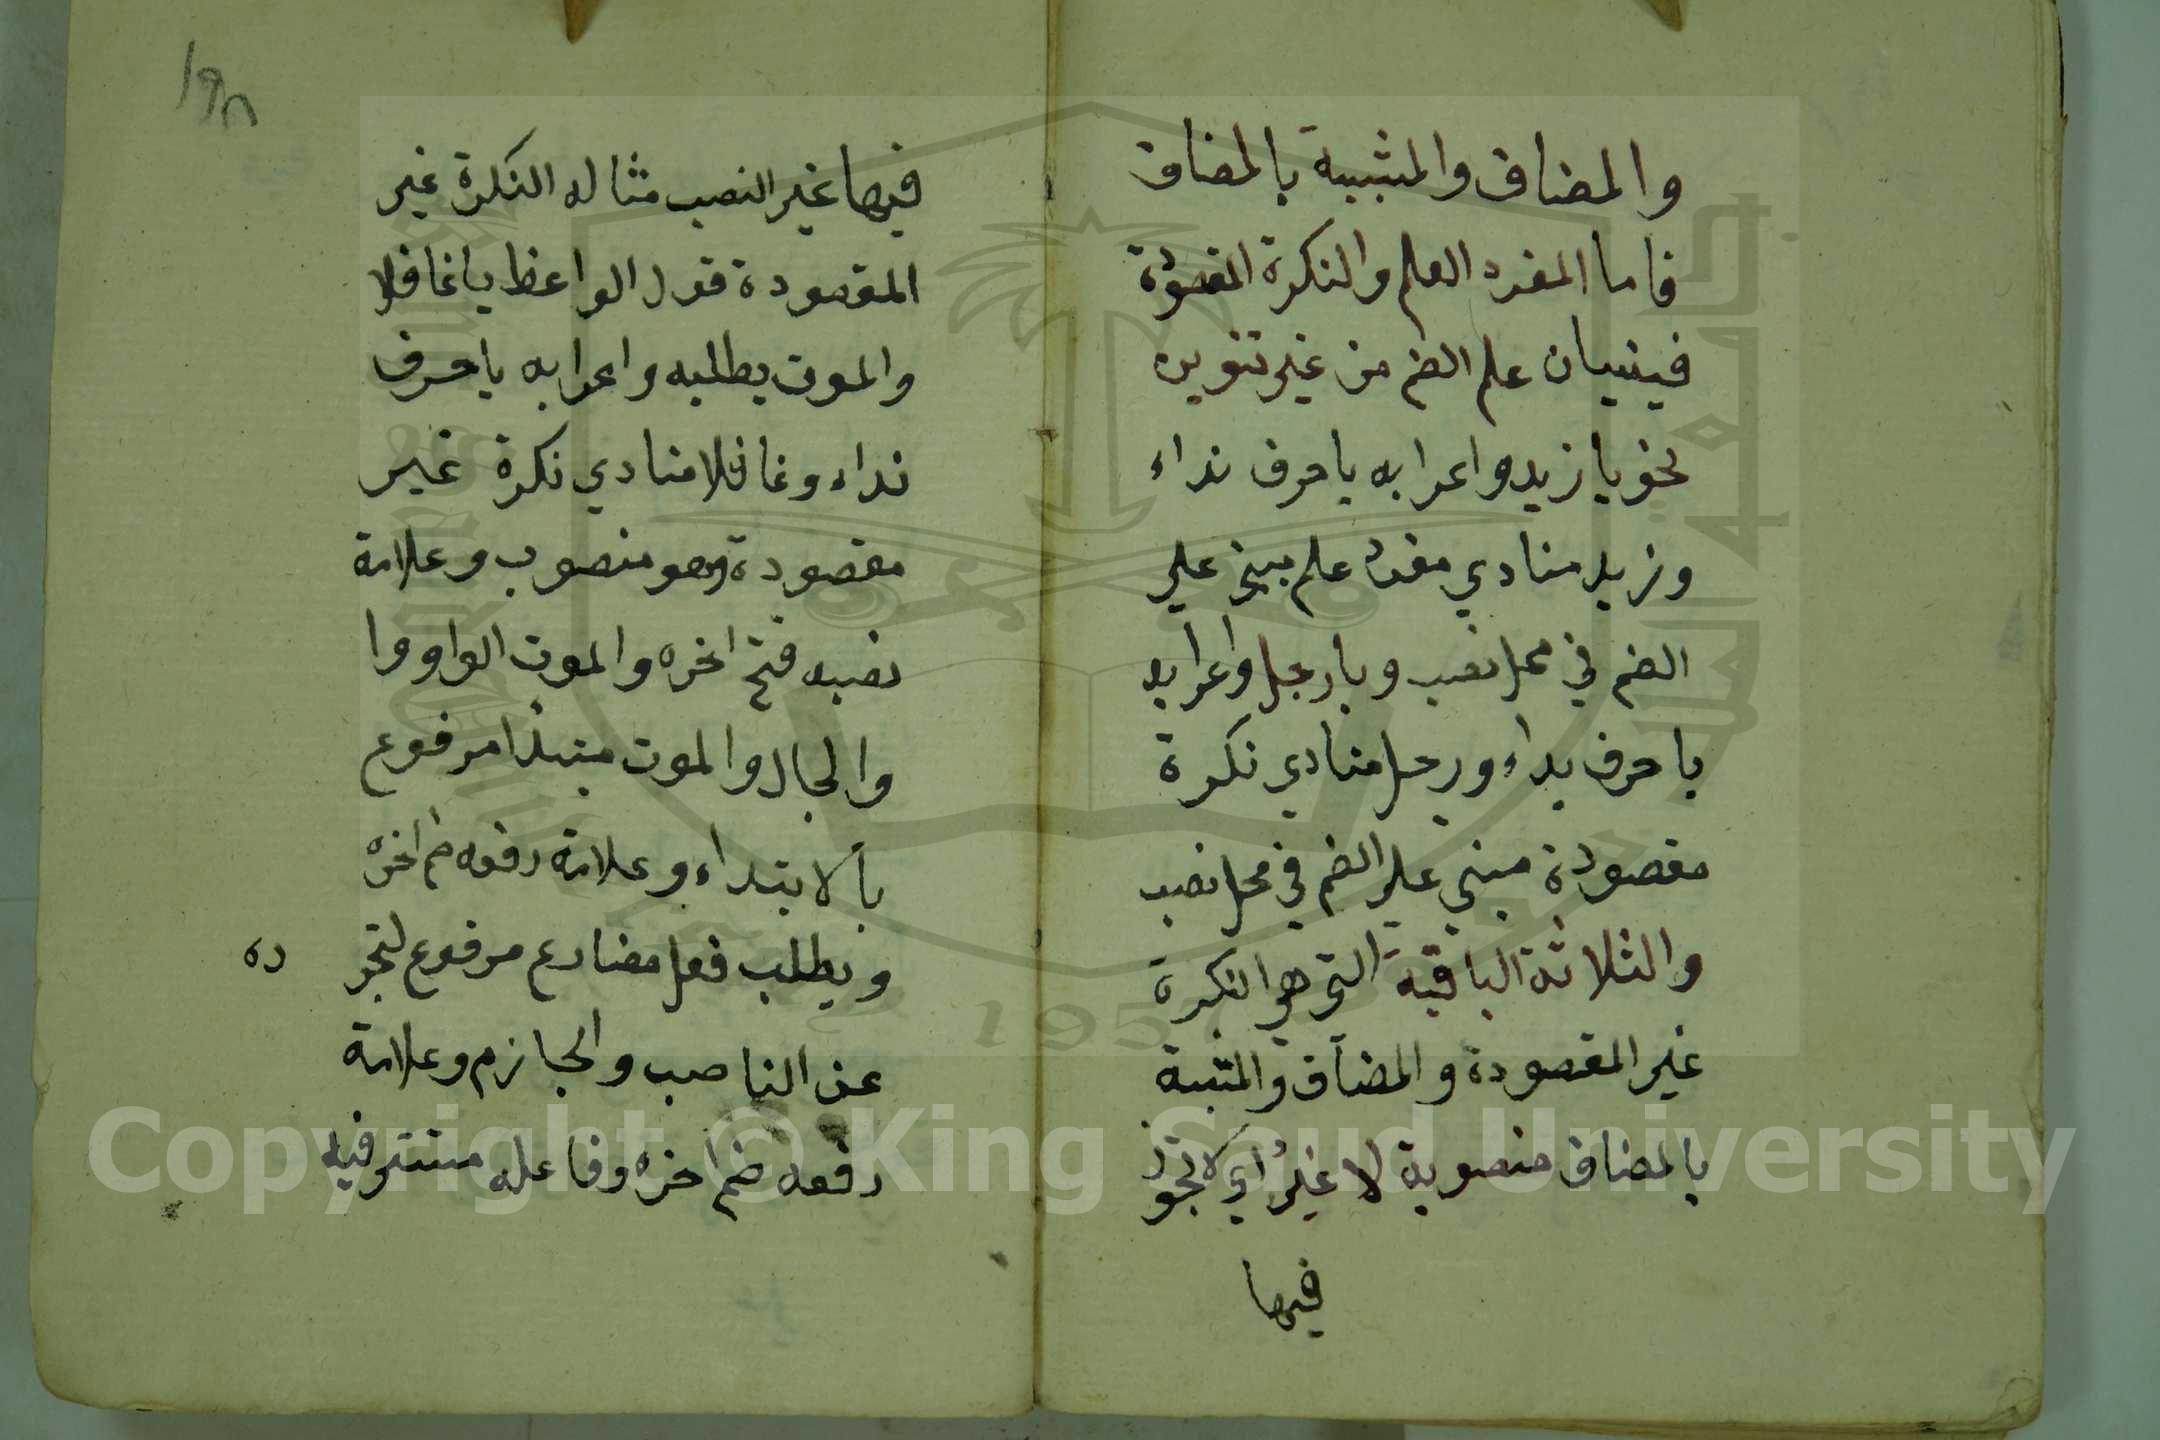 والمضاف والمشبه بالمضاف
فاما المفرد العلم والنكرة المقصودة
فيبنيان على الضم من غير تنوين
نحو يا زيد واعرابه يا حرف نداء
وزيد منادي مفرد علم مبني علي
الضم في محل نصب ويا رجل واعرابه
يا حرف نداء ورجل منادي نكرة
مقصودة مبني علي الضم في محل نصب
والثلاثة الباقية التي هي النكرة
غير المقصودة والمضاف والمشبه
بالمضاف منصوبة لا غير اي لا تجوز
فيها
فيها غير النصب مثاله النكرة غير
المقصودة قول الواعظ يا غافلا
والموت يطلبه واعرابه يا حرف
نداء وغافلا منادي نكرة غير
مقصودة وهو منصوب وعلامة
نصبه فتح اخره والموت الواو وا
والحال والموت مبتدأ مرفوع
بالابتداء وعلامة رفعه ضم اخره
ويطلب فعل مضارع مرفوع لتجر ده
عن الناصب والجازم وعلامة
رفعه ضم اخره وفاعله مستتر فيه
1957
Copyright © King Saud University